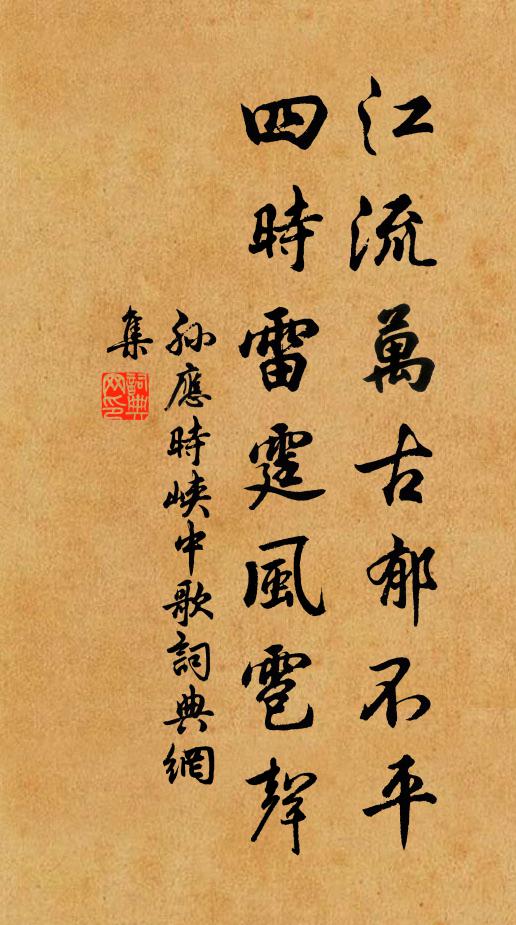 江流萬古郁不平
四時雷霆風雹聲
孙應時峽中歌詞典網
集
詞典
网印